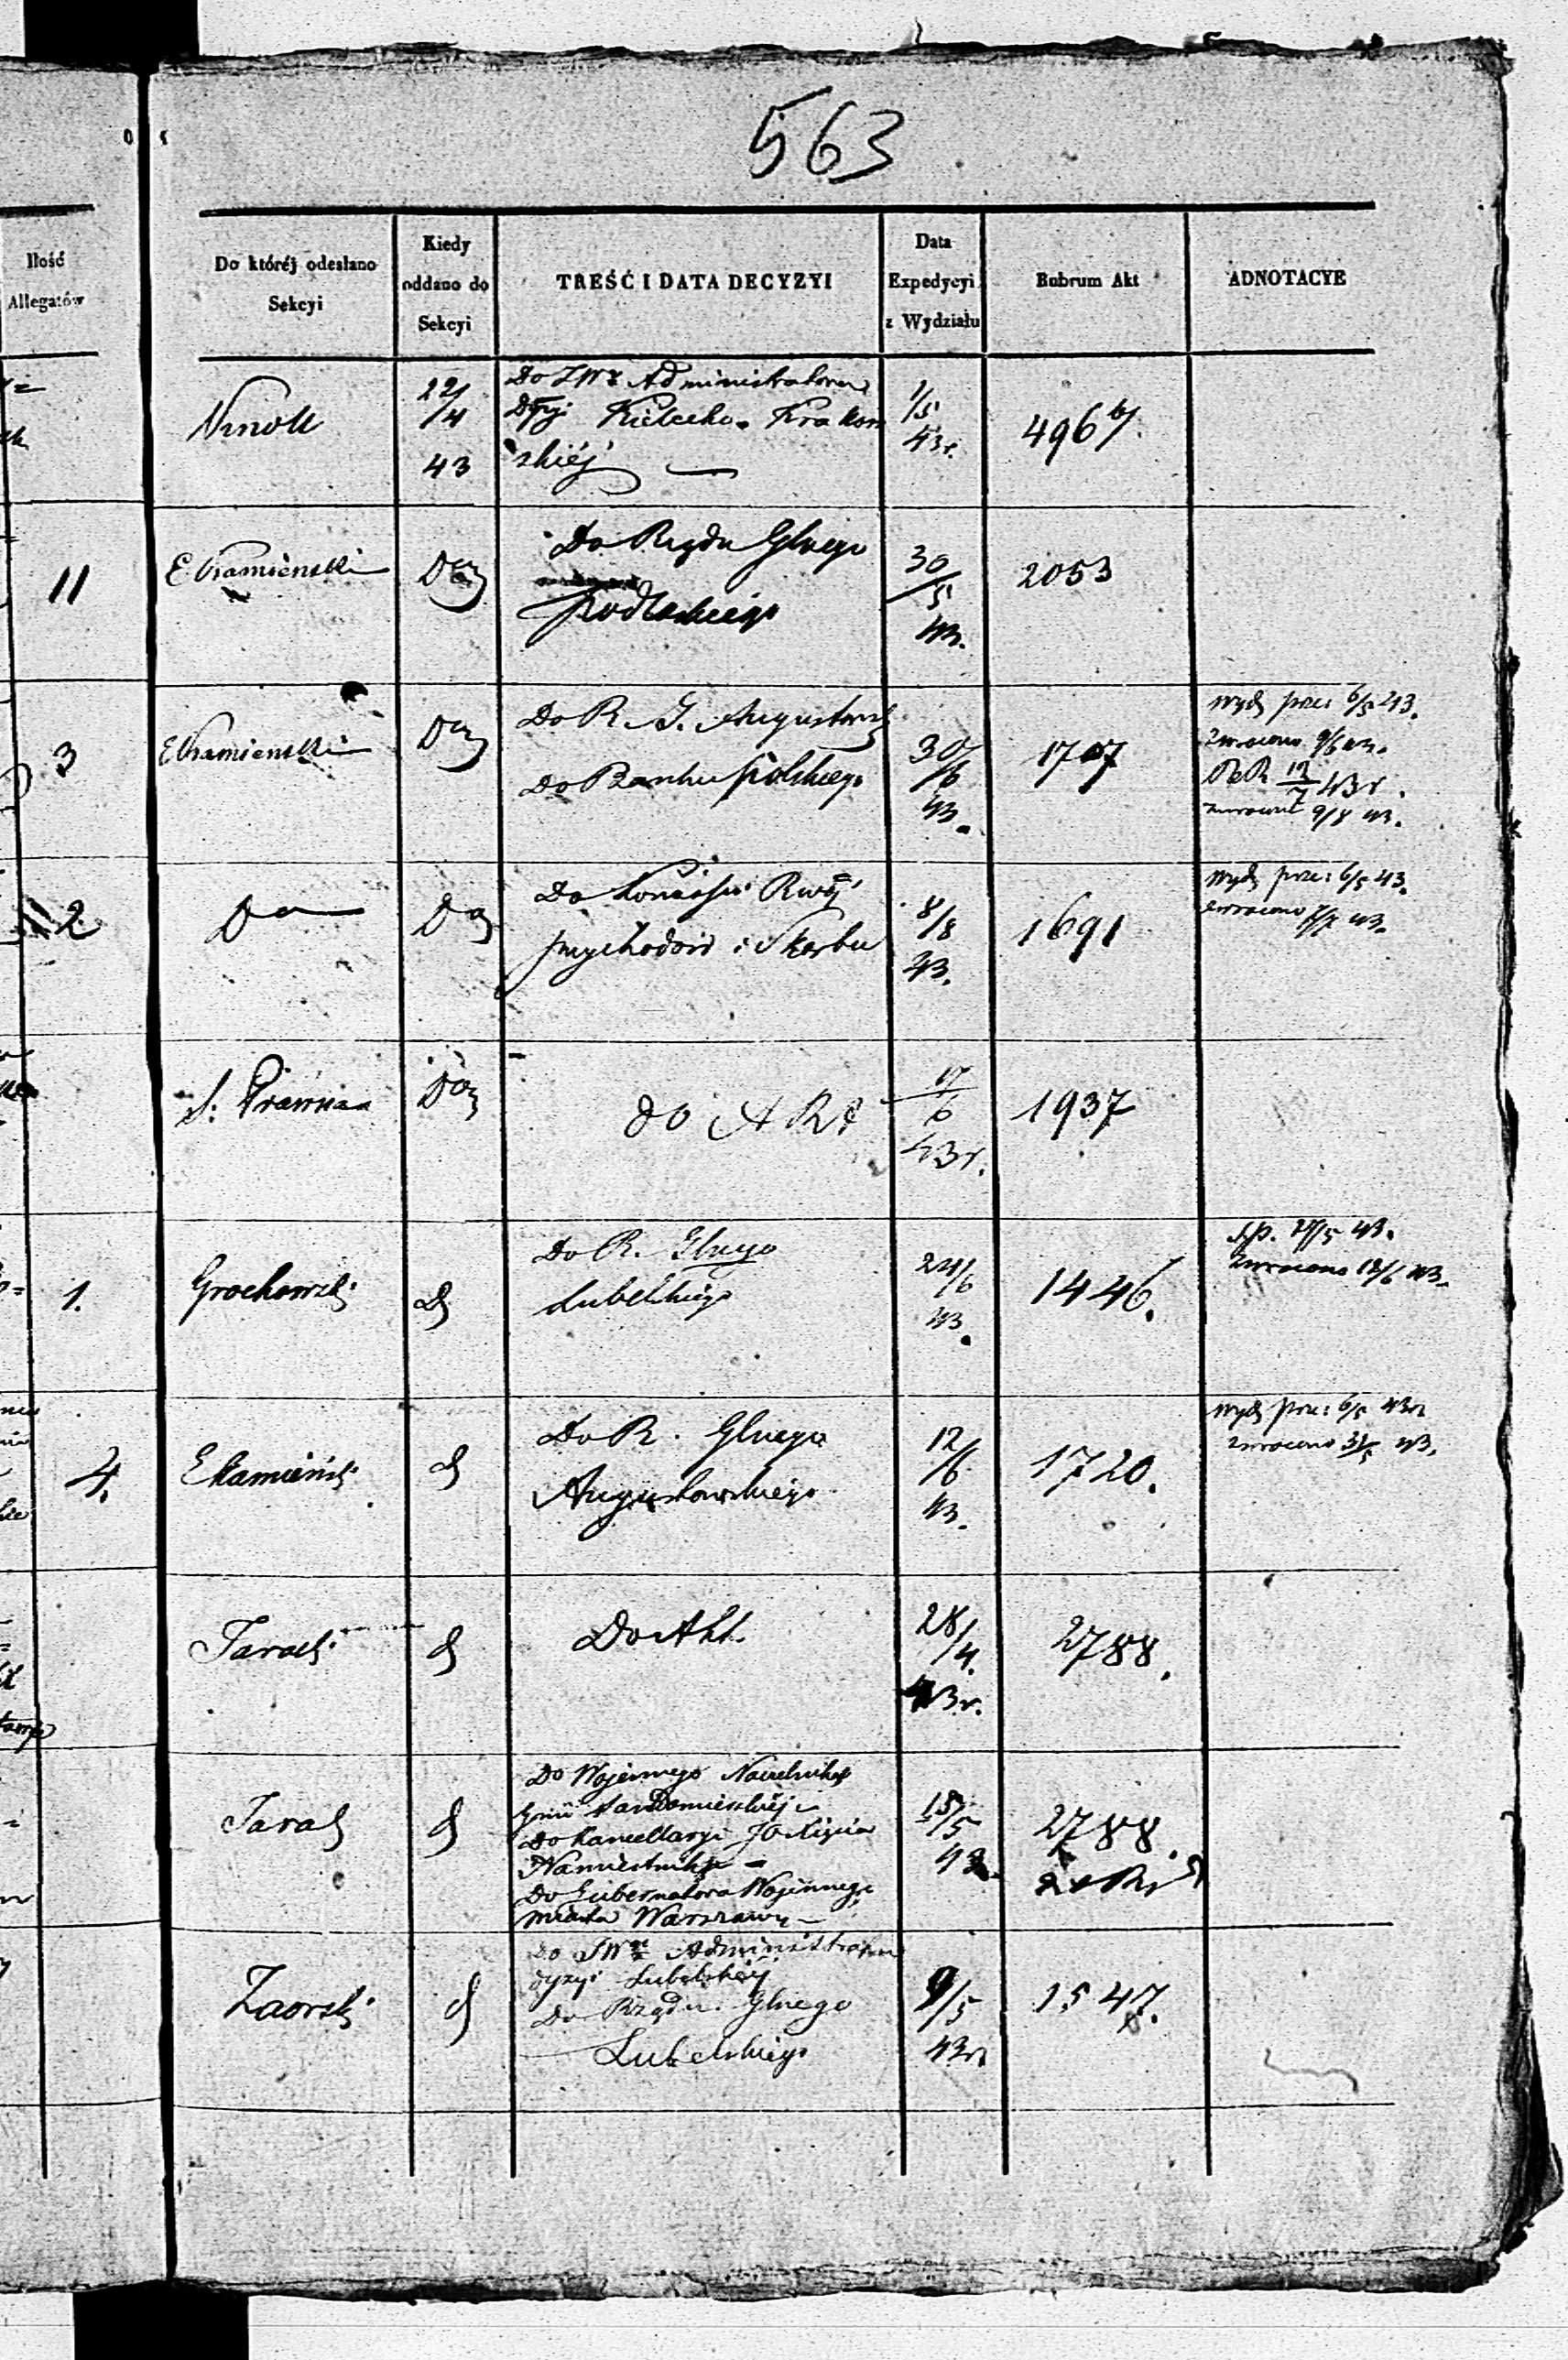 563
Ilość
Allegatów
Do któréj odesłano
Sekcyi
Kiedy
oddano do
Sekcyi
TREŚĆ I DATA DECYZYI
Data
Expedycyi
z Wydziału
Rubrum Akt
ADNOTACYE
22/4
43
Do JWo Administratora
Dyyi Kielecko-Krakow
skiéj
1/5
43r.
496 b/.
11
E Kamienski
Do
Do Rządu Glnego
Podlaskiego
30/5
43.
2053
3
E Kamienski
Do
Do R. G. Augustows
Do Banku Polskiego
30/6
43.
1707
Wyd prze: 6/5 43.
Zwrócono 9/6 43.
12/7 43r.
9/8 43.
2
Do
Do
Do Komissyi Rwéj
Przychodów i Skarbu
8/8
43.
1691
Wyd prze: 6/5 43.
zwrócono 7/7 43.
S: Prawna
Do
do Akt
17/6
43r.
1937
1.
Grochowski
d
Do R. Glnego
Lubelskiego
24/6
43.
1446.
43.
Zwrócono 12/6 43.
4.
E Kamieński
d
Do R. Glnego
Augustowskiego
12/6
43.
1720.
Wyd prze: 6/5 43r
zwrócono 31/5 43.
d
Do Akt.
28/4.
43r.
2788.
d
Do Wojennego Naczelnika
Gnii Sandomierskiéj
Do Kancellaryi JO Xięcia
Namiestnika -
Do Gubernatora Wojennego
miasta Warszawy -
18/5
43
2788.
Zaorski
d
Do JWo Administratora
Dyyi Lubelskiéj
Do Rządu Glnego
Lubelskiego
9/5
43r
1547.